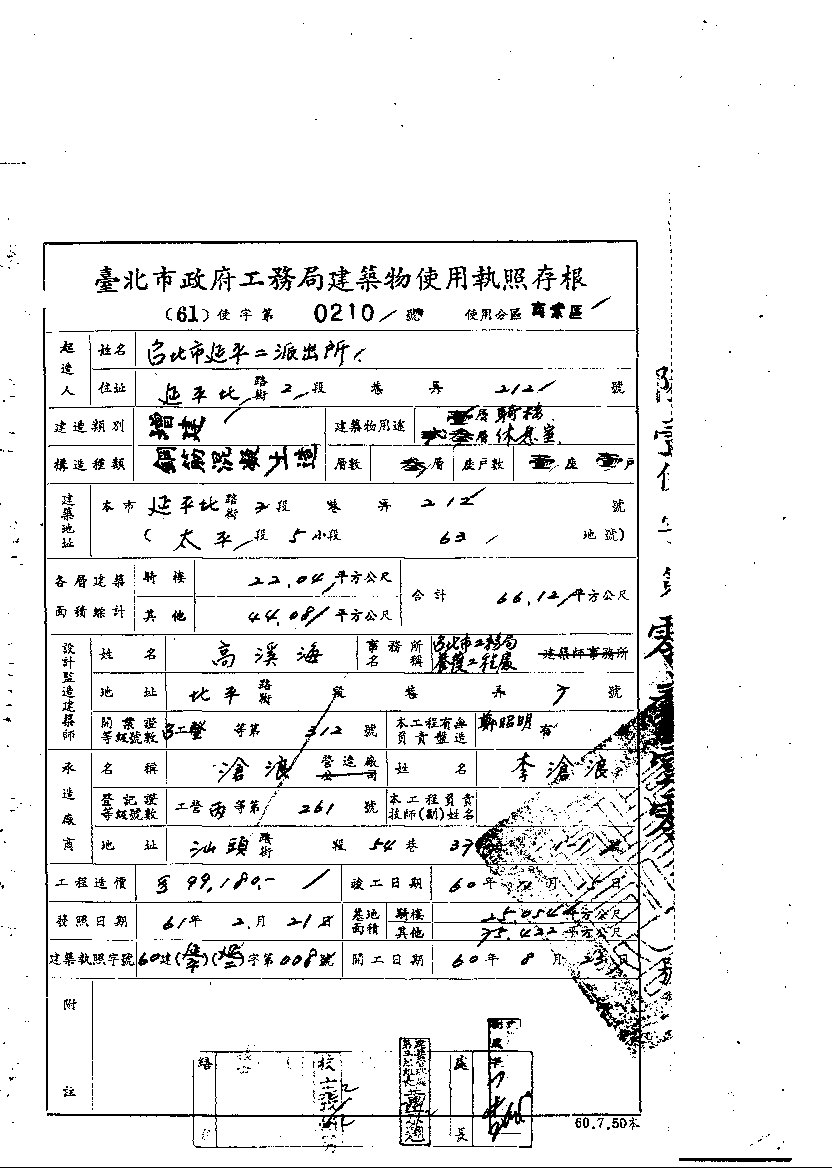 臺北市政府工務局建築物使用執照存根
(61)使字第 0210 號 使用分區 商業區
起造人 姓名 台北市延平二派出所
住址 延平北 路街 2 段 巷 弄 212 號
建造類別 增建 建築物用途 壹層騎樓
貳叁層休息室
構造種類 鋼筋混凝土造 層數 叁層 座戶數 壹座 壹戶
建築地址 本市 延平北 路街 2 段 巷 弄 212 號
(太平 段 5 小段 63 地號)
各層建築面積綜計 騎樓 22.04 平方公尺 合計 66.12 平方公尺
其他 44.08 平方公尺
設計監造建築師 姓名 高溪海 事務所名稱 台北市工務局養護工程處 建築師事務所
地址 北平 路街 段 巷 弄 7 號
開業證等級號數 台工登 等第 312 號 本工程有無負責監造 鄭昭明 有
承造廠商 名稱 滄浪 營造廠公司 姓名 李滄浪
登記證等級號數 工營丙等第 261 號 本工程負責技師(副)姓名
地址 汕頭 路街 段 54 巷
工程造價 99,180.- 竣工日期 60 年 月 15 日
發照日期 61 年 2 月 21 日 基地面積 騎樓 25.054 平方公尺
其他 35.422 平方公尺
建築執照字號 60建(延平)字第008號 開工日期 60 年 8 月 日
附註
處長
60.7.50本